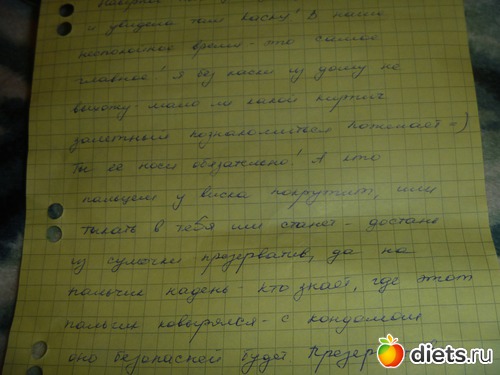 и увидела там каску! В наше
неспокойное время - это самое
главное! Я без каски из дому не
выхожу - мало ли какой кирпич
залетный познакомиться пожелает =)
Ты её носи обязательно! А кто
пальцем у виска покрутит, или
тыкать в тебя им станет - достань
из сумочки презерватив, да на
пальчик надень - кто знает, где этот
пальчик ковырялся - с кондомом
оно безопасней будет
diets.ru